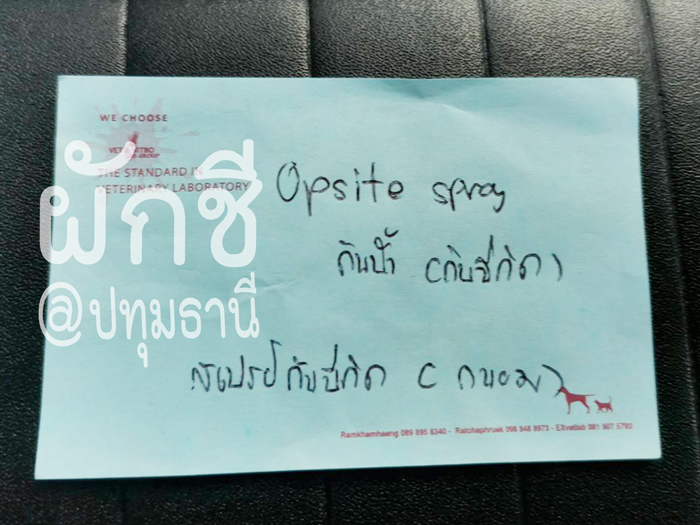 WE CHOOSE
VET
GROUP
THE STANDARD IN
VETERINARY LABORATORY
Opsite spray
กันน้ำ
สเปรย์กัน
ผักชี
@ปทุมธานี
Ramkhamhaeng 089 895 8340 - Ratchaphruek 098 848 8973 - EXvetlab 081 907 5780